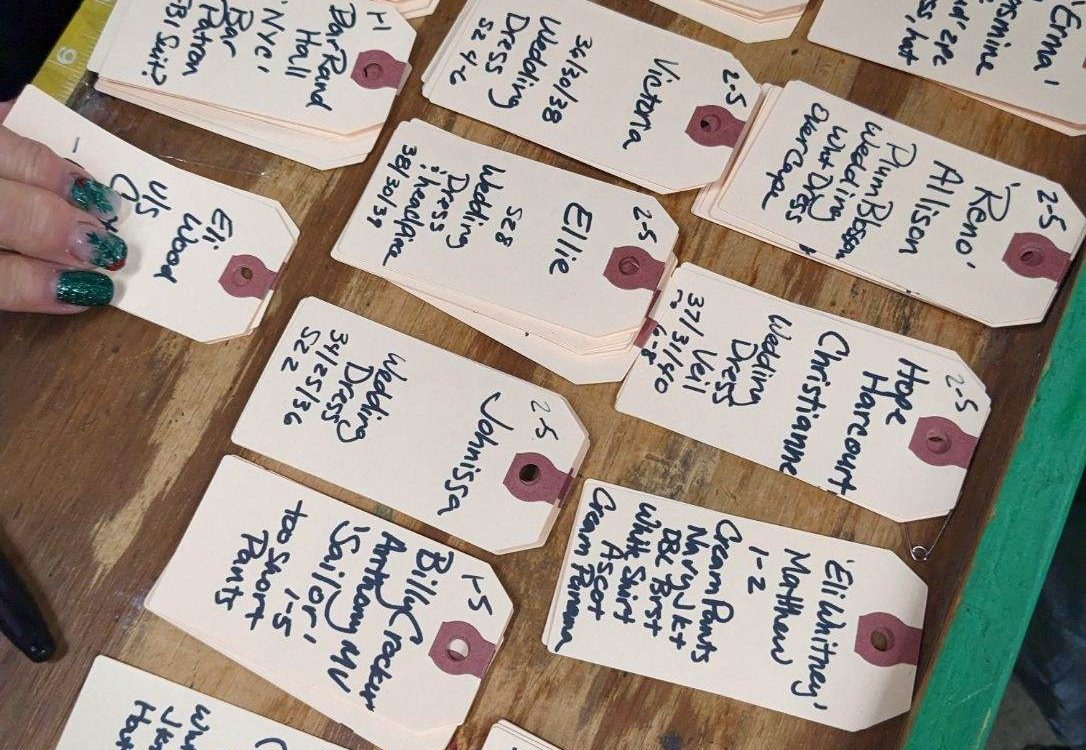 1-1
Bar Rand
Hall
'NYC'
Bar
Patron
2-5
Victoria
36/30/38
Wedding
Dress
SZ 4-6
Erma'
2-5
'Reno'
Allison
Plum Blossom
Wedding
Wht Dress
Over Cape
Eli
Wood
U/S
2-5
Ellie
SZ 8
Wedding
Dress
: headpiece
38/30/39
2-5
Hope
Harcourt
Christianne
Wedding
Dress
Veil
37/31/40
6-8
2-5
Johnissa
Wedding
Dress
34/25/36
SZ 2
1-5
Billy Crocker
Anthony MV
'Sailor'
1-5
too Short
Pants
'Eli Whitney'
Matthew
1-2
Cream Pants
Navy Jkt
Dbl Brst
White Shirt
Ascot
Cream Panama
9